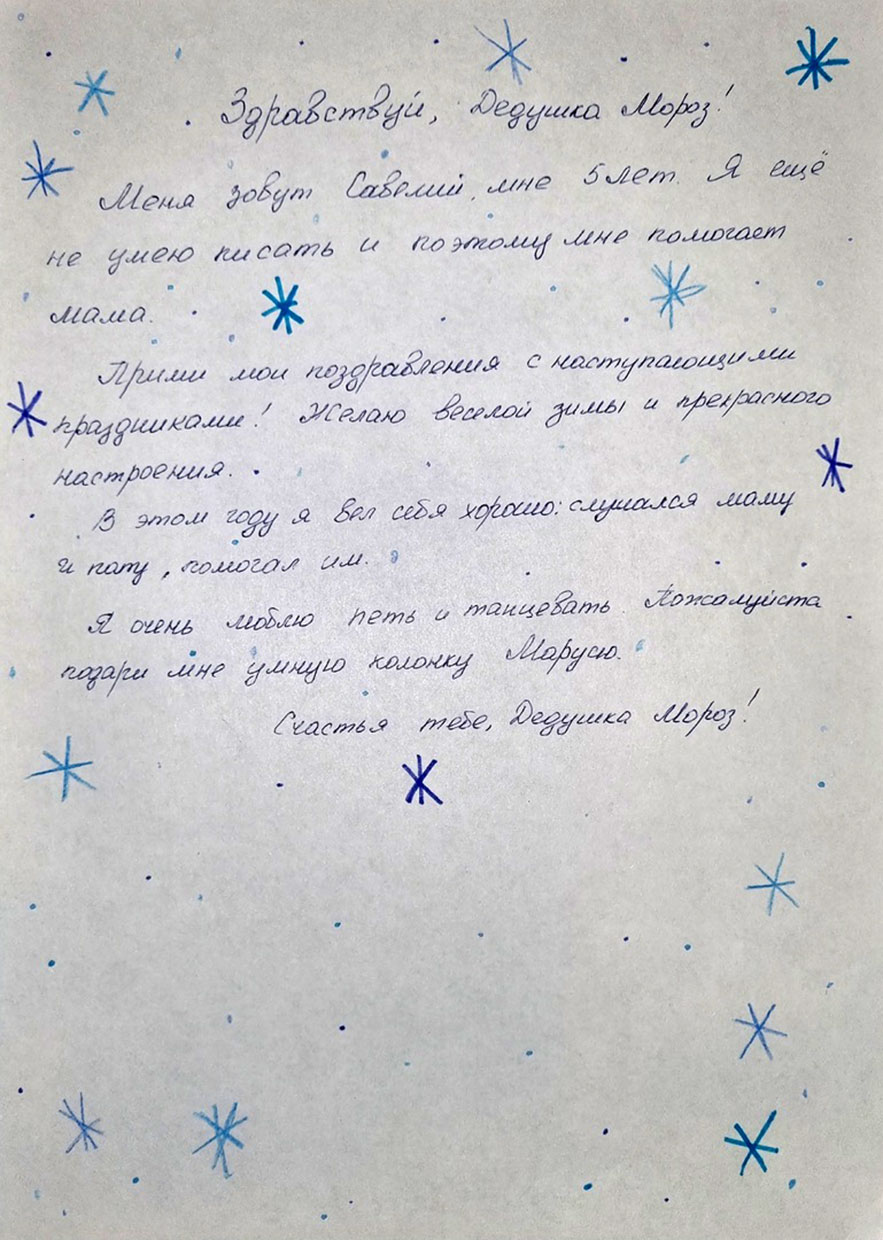 Здравствуй, Дедушка Мороз!
Меня зовут Савелий, мне 5 лет. Я ещё
не умею писать и поэтому мне помогает
мама.
Прими мои поздравления с наступающими
праздниками! Желаю веселой зимы и прекрасного
настроения.
В этом году я вел себя хорошо: слушался маму
и папу, помогал им.
Я очень люблю петь и танцевать. Пожалуйста
подари мне умную колонку Марусю.
Счастья тебе, Дедушка Мороз!